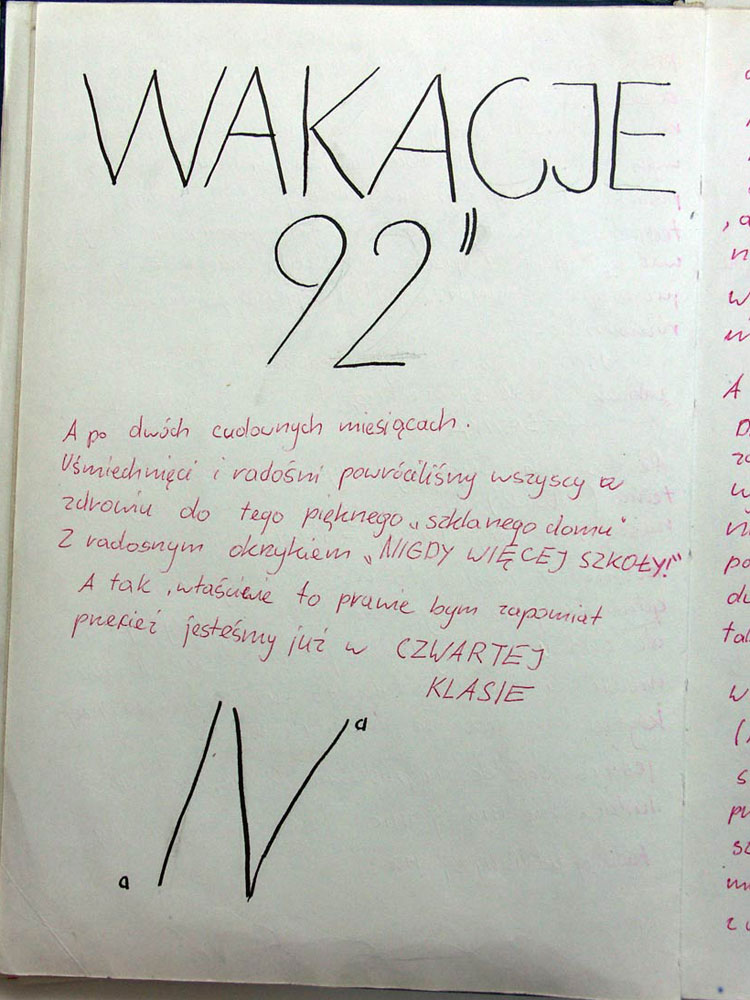 WAKACJE
92"
A po dwóch cudownych miesiącach.
Uśmiechnięci i radośni powróciliśmy wszyscy w
zdrowiu do tego pięknego „szklanego domu"
Z radosnym okrzykiem „NIGDY WIĘCEJ SZKOŁY!"
A tak, właściwie to prawie bym zapomniał
przecież jesteśmy już w CZWARTEJ
KLASIE
IV a
a